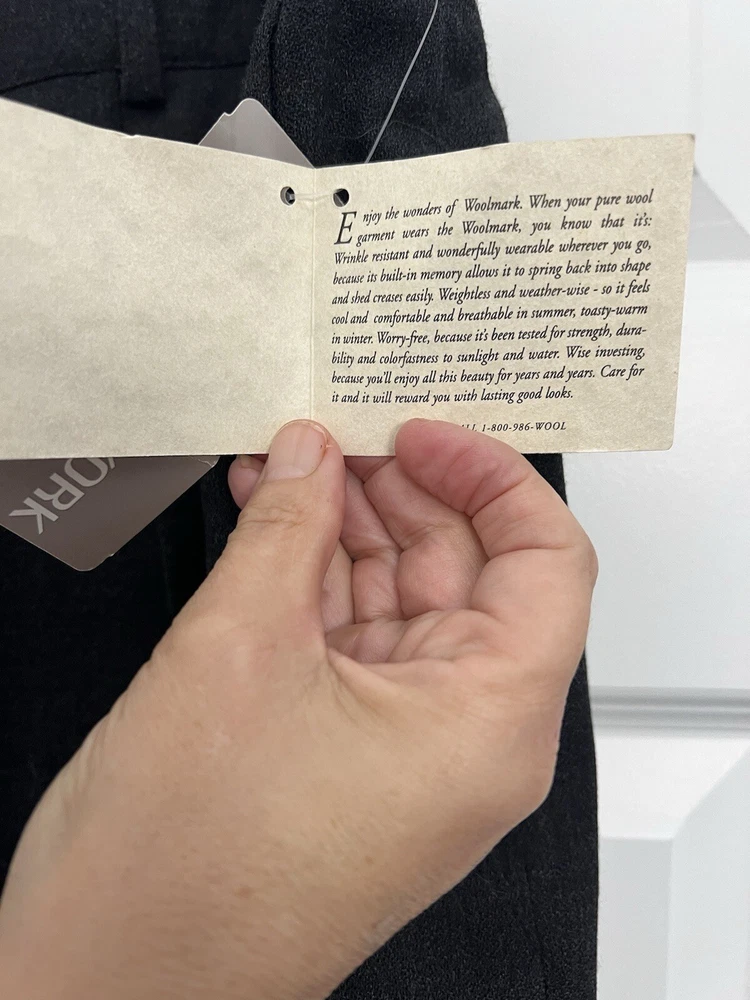 Enjoy the wonders of Woolmark. When your pure wool
garment wears the Woolmark, you know that it's:
Wrinkle resistant and wonderfully wearable wherever you go,
because its built-in memory allows it to spring back into shape
and shed creases easily. Weightless and weather-wise - so it feels
cool and comfortable and breathable in summer, toasty-warm
in winter. Worry-free, because it's been tested for strength, dura-
bility and colorfastness to sunlight and water. Wise investing,
because you'll enjoy all this beauty for years and years. Care for
it and it will reward you with lasting good looks.
1-800-986-WOOL
ORK